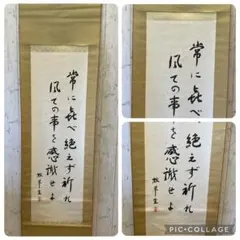 常に㐂べ絶えず祈れ
凡ての事を感謝せよ
常に㐂べ
絶えず祈れ
凡ての事を感謝せよ
PIC•COLLAGE